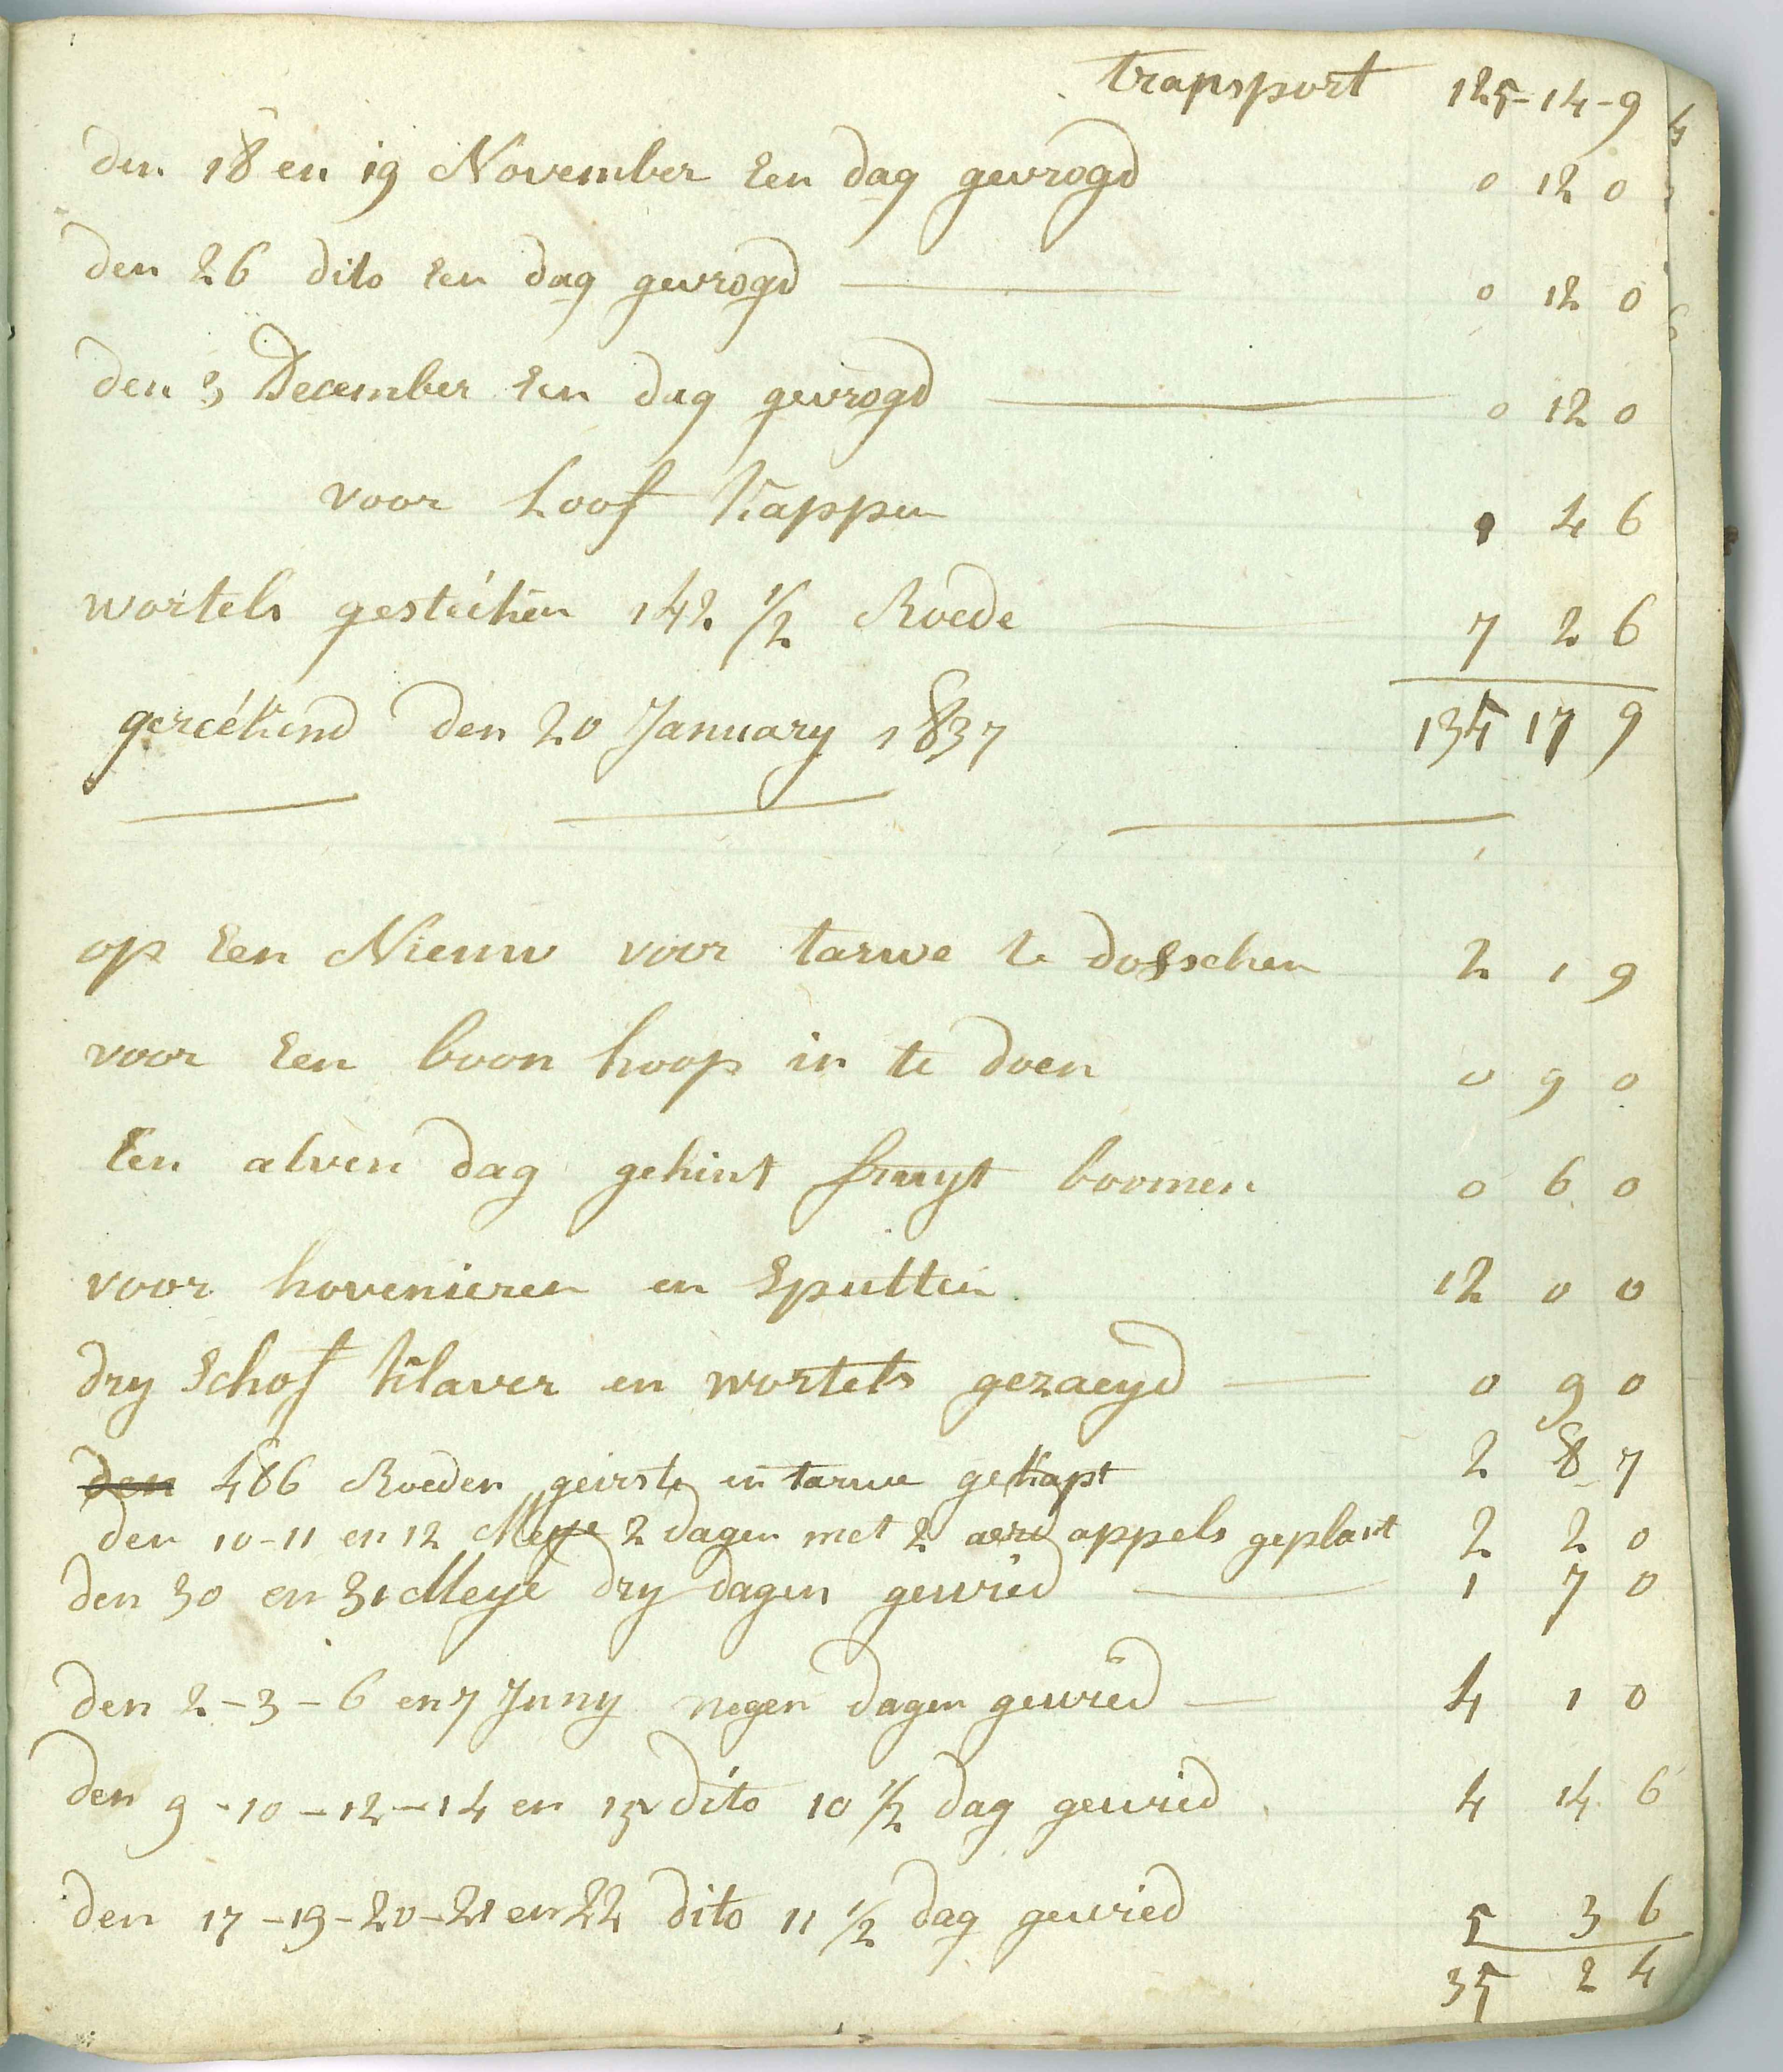 transport 125-14-9
den 18 en 19 November Een dag gevrogd 0 12 0
den 26 dito Een dag gevrogd 0 12 0
den 3 December Een dag gevrogd 0 12 0
voor Loof Kappen 1 4 6
wortels gesteéken 142 1/2 Roede 7 2 6
gereékend den 20 January 1837 135 17 9
op Een Nieuw voor tarwe te dosschen 2 1 9
voor Een boon hoop in te doen 0 9 0
Een alven dag gekint fruyt boomen 0 6 0
voor hovenieren en Sputten 12 0 0
dry Schof Klaver en wortels gezaeyd 0 9 0
den 486 Roeden geirste en tarwe gekapt 2 8 7
den 10-11 en 12 Meye 2 dagen met 2 aerd appels geplant 2 2 0
den 30 en 31 Meye dry dagen gewied 1 7 0
den 2-3-6 en 7 Juny negen dagen gewied 4 1 0
den 9-10-12-14 en 15 dito 10 1/2 dag gewied 4 14 6
den 17-19-20-21 en 22 dito 11 1/2 dag gewied 5 3 6
35 2 4